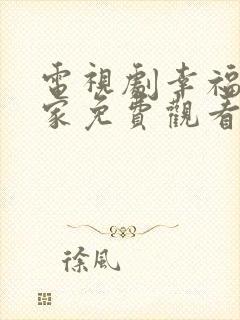 電視劇幸福
家免費觀看
徐風